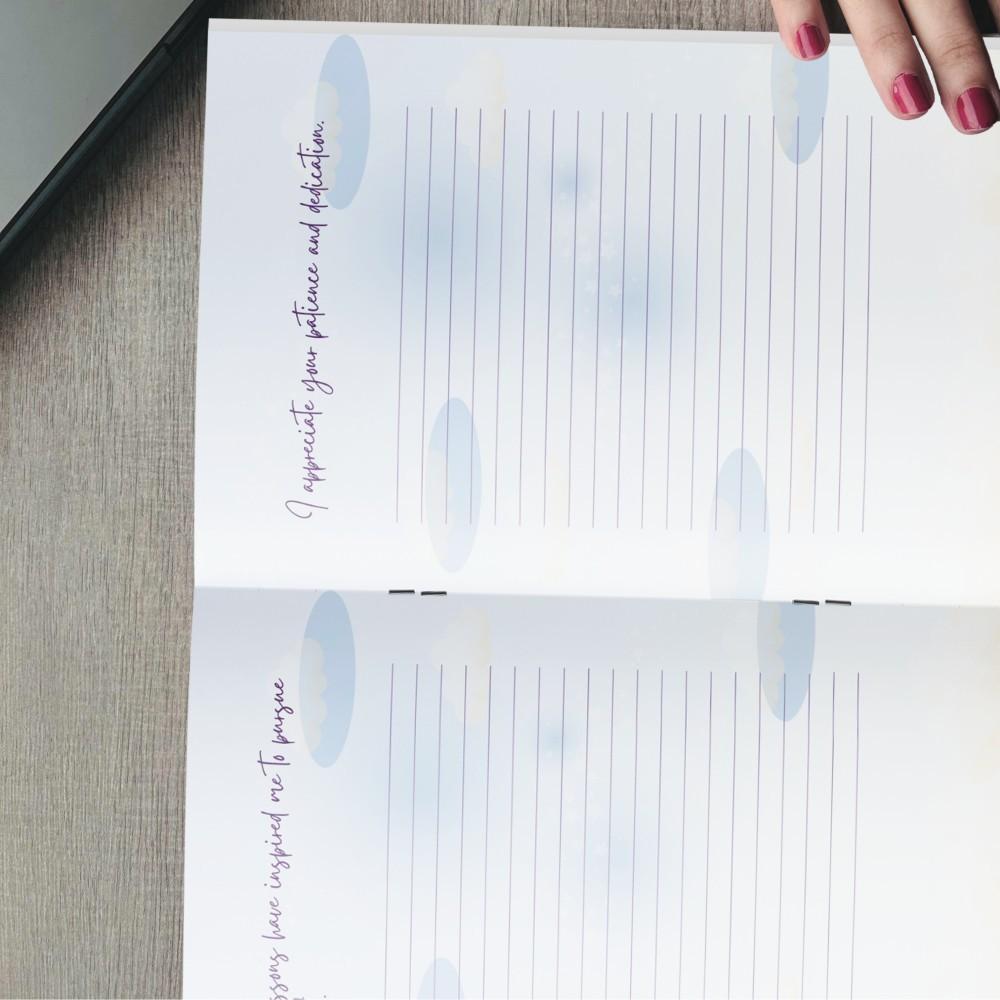 I appreciate your patience and dedication.
have inspired me to pursue